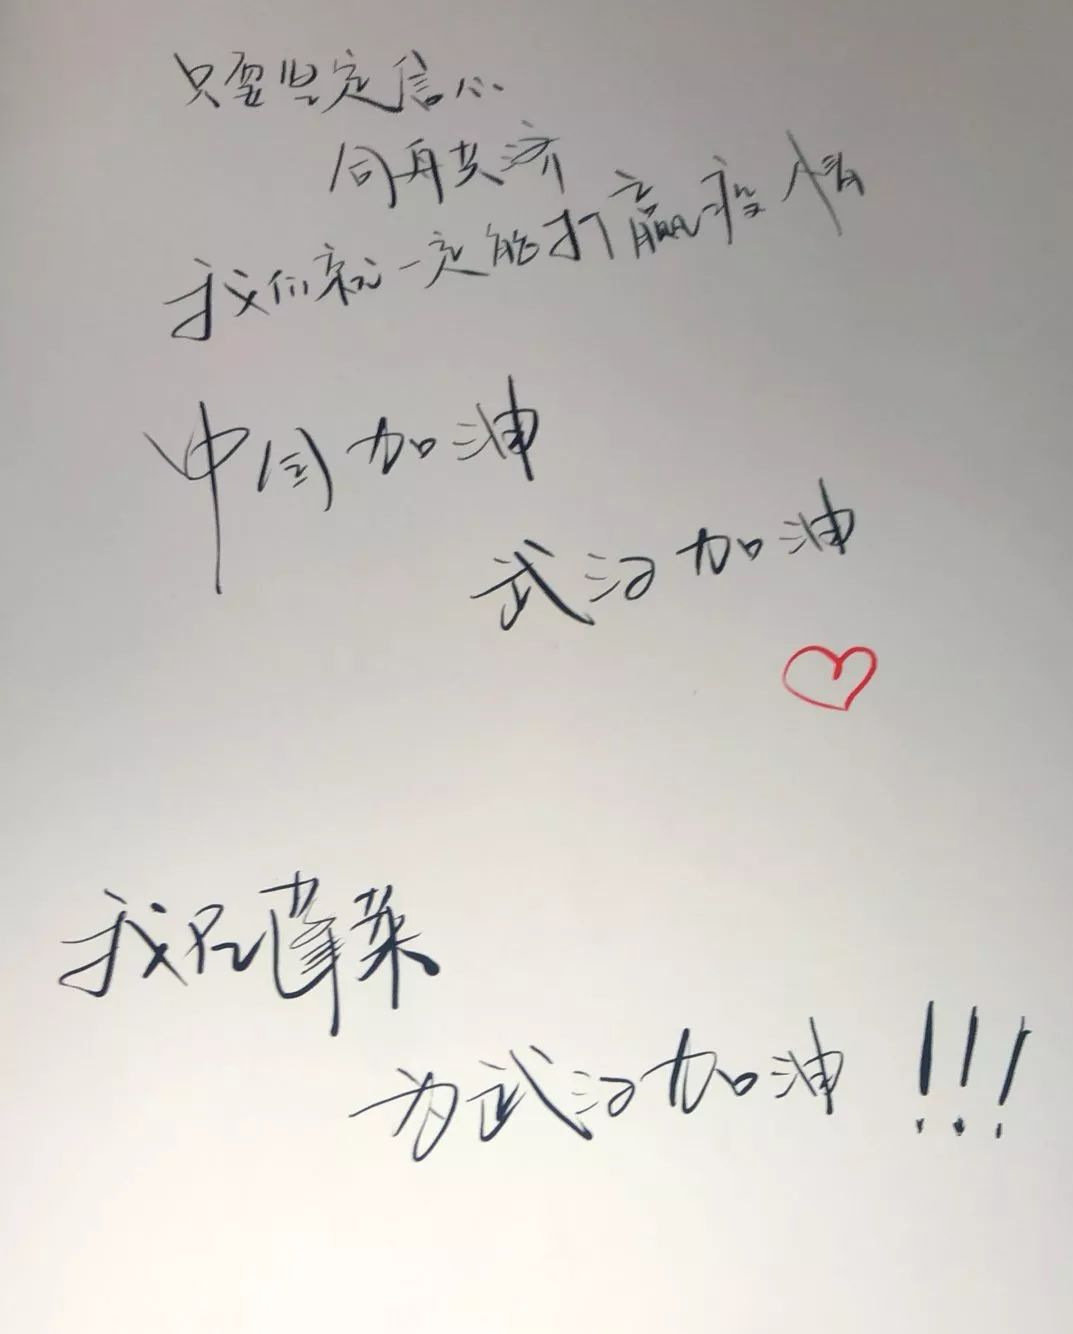 只要坚定信心
同舟共济
我们就一定能打赢疫情
中国加油
武汉加油
我在蓬莱
为武汉加油!!!